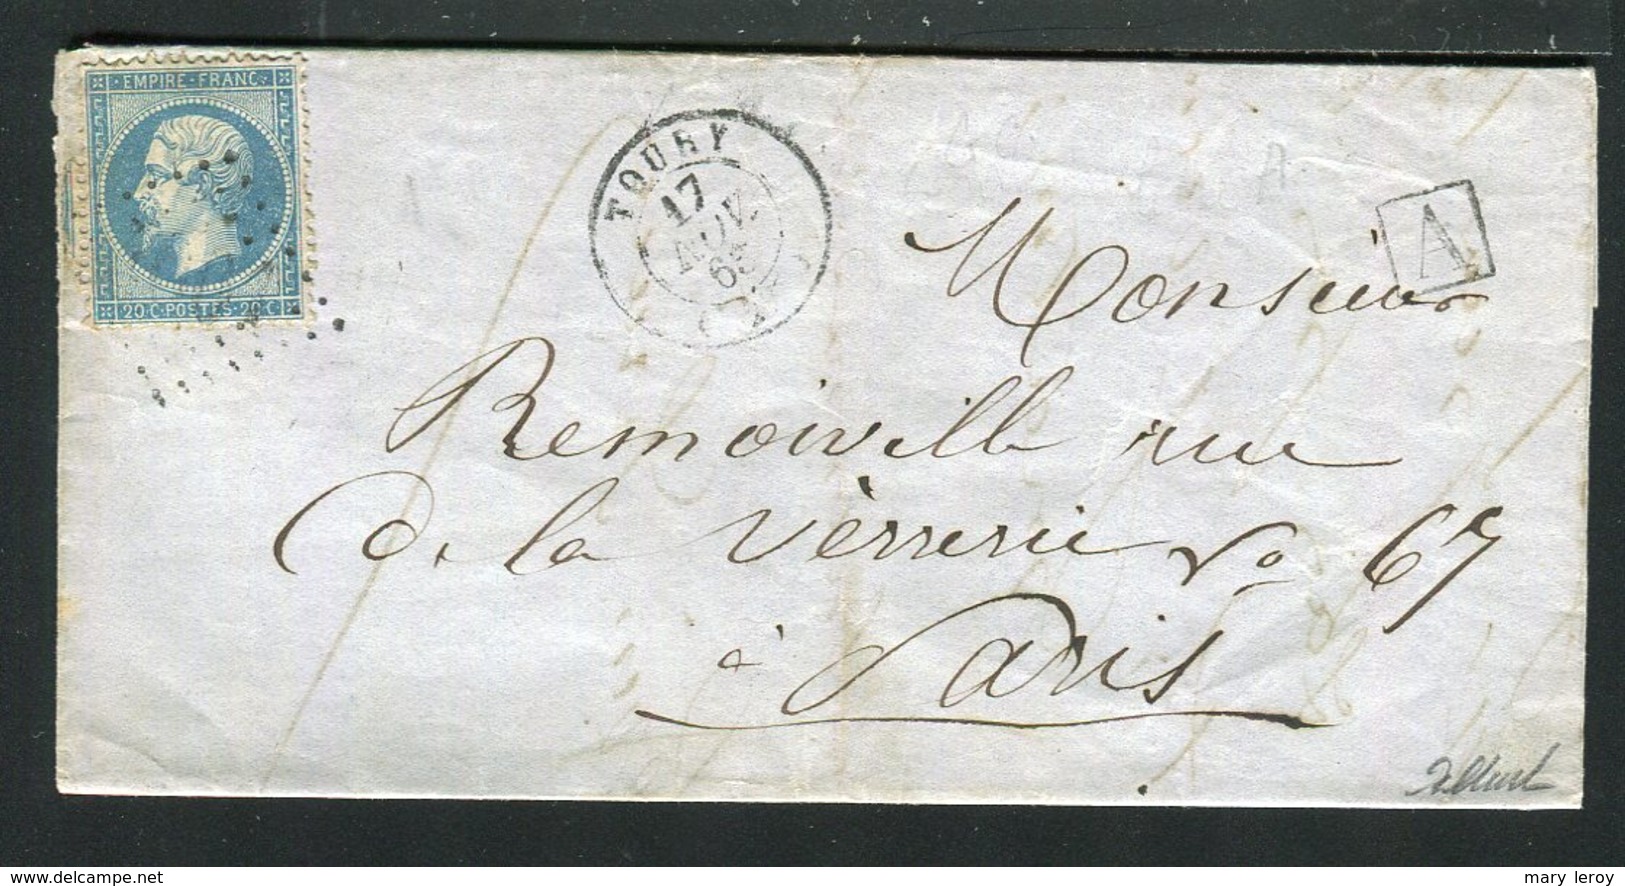 EMPIRE·FRANC
20·C·POSTES·20·C
TOURY
17
NOV.
65
A
Monsieur
Remoiville rue
de la Vèrrerie No 67
à Paris
www.delcampe.net
mary leroy